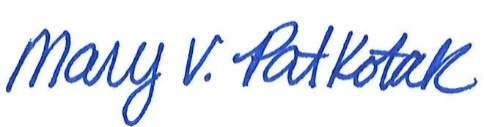 Mary V. Patkotak